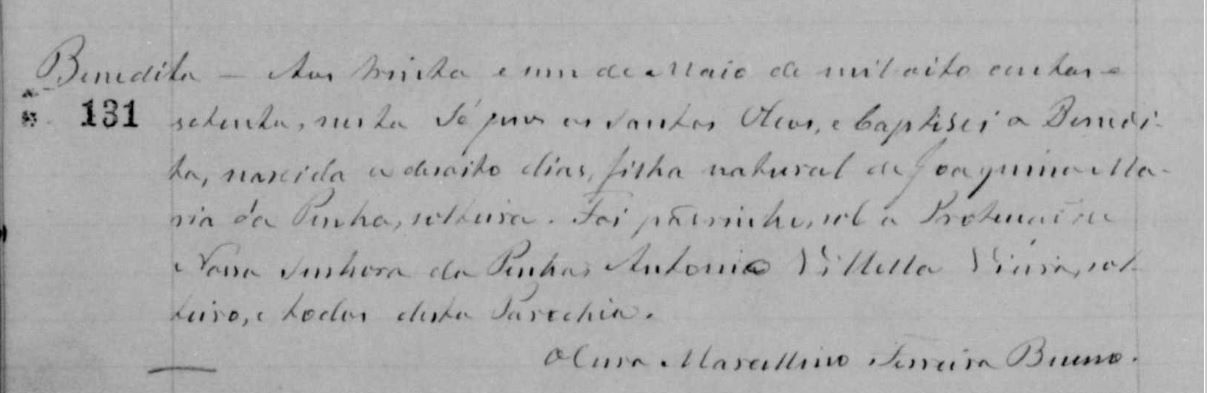 Benedita — Aos trinta e um de Maio de mil oito centos e
131 setenta, nesta Sé puz os santos Oleos, e baptisei a Benedi-
ta, nascida a desoito dias, filha natural de Joaquina Ma-
ria da Penha, solteira. Foi padrinho, sob a Protecção de
Nossa Senhora da Penha, Antonio Villella Vieira, sol-
teiro, e todos desta Parochia.
O Cura Marcellino Ferreira Bueno.